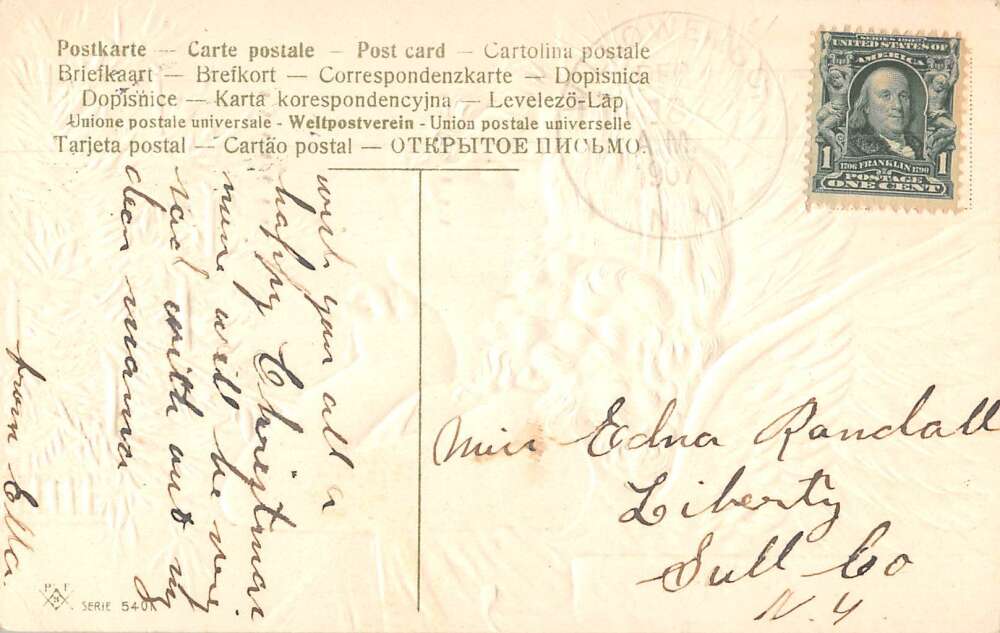 Postkarte — Carte postale — Post card — Cartolina postale
Briefkaart — Brefkort — Correspondenzkarte — Dopisnica
Dopisnice — Karta korespondencyjna — Levelezö-Lap
Unione postale universale - Weltpostverein - Union postale universelle
Tarjeta postal — Cartão postal — ОТКРЫТОЕ ПИСЬМО
SERIES 1902
UNITED STATES OF
AMERICA
1 1
1706 FRANKLIN 1790
POSTAGE
ONE CENT
1907
wish you all a
happy Christmas
mine will be very
sad with out my
dear mama
from Ella.
Miss Edna Randall
Liberty
Sull Co
N. Y
P. F.
SERIE 540